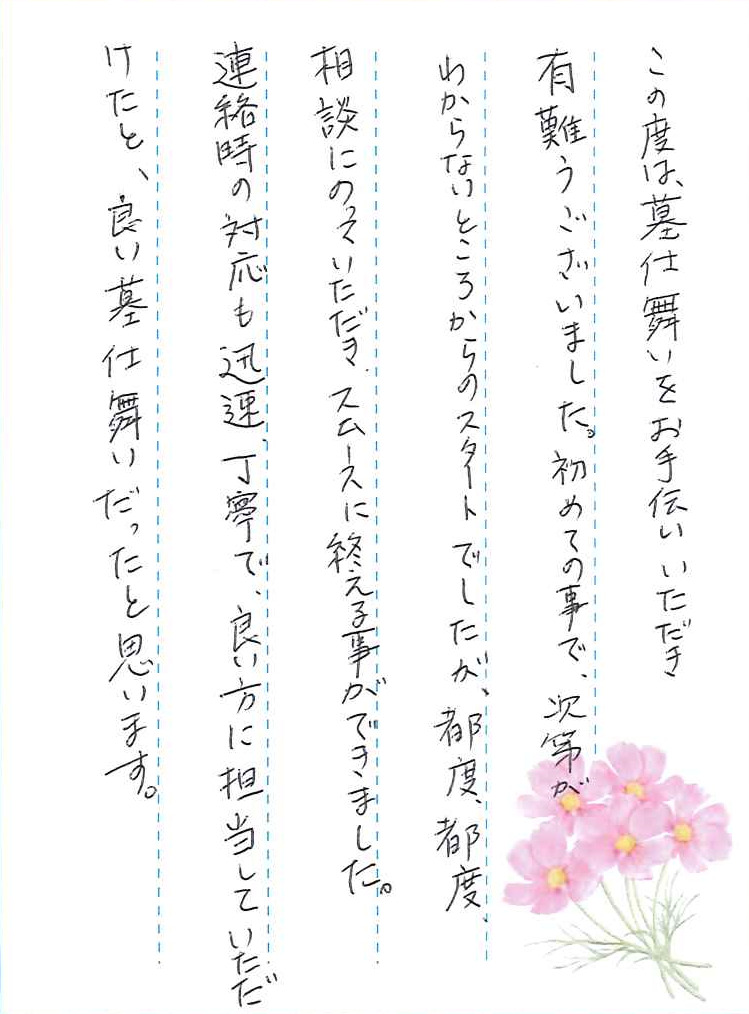 この度は、墓仕舞いをお手伝いいただき
有難うございました。初めての事で、次第が
わからないところからのスタートでしたが、都度、都度、
相談にのっていただき、スムースに終える事ができました。
連絡時の対応も迅速、丁寧で、良い方に担当していただ
けたと、良い墓仕舞いだったと思います。